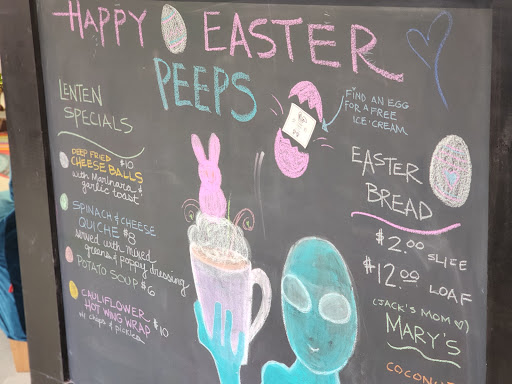 HAPPY EASTER
PEEPS
FIND AN EGG
FOR A FREE
ICE·CREAM
LENTEN
SPECIALS
DEEP FRIED $10
CHEESE BALLS
with Marinara &
garlic toast
SPINACH & CHEESE
QUICHE $8
served with mixed
greens & poppy dressing
POTATO SOUP $6
CAULIFLOWER
HOT WING WRAP $10
w/ chips & pickles
EASTER
BREAD
$2.00 SLICE
$12.00 LOAF
(JACK'S MOM ♡)
MARY'S
COCONUT